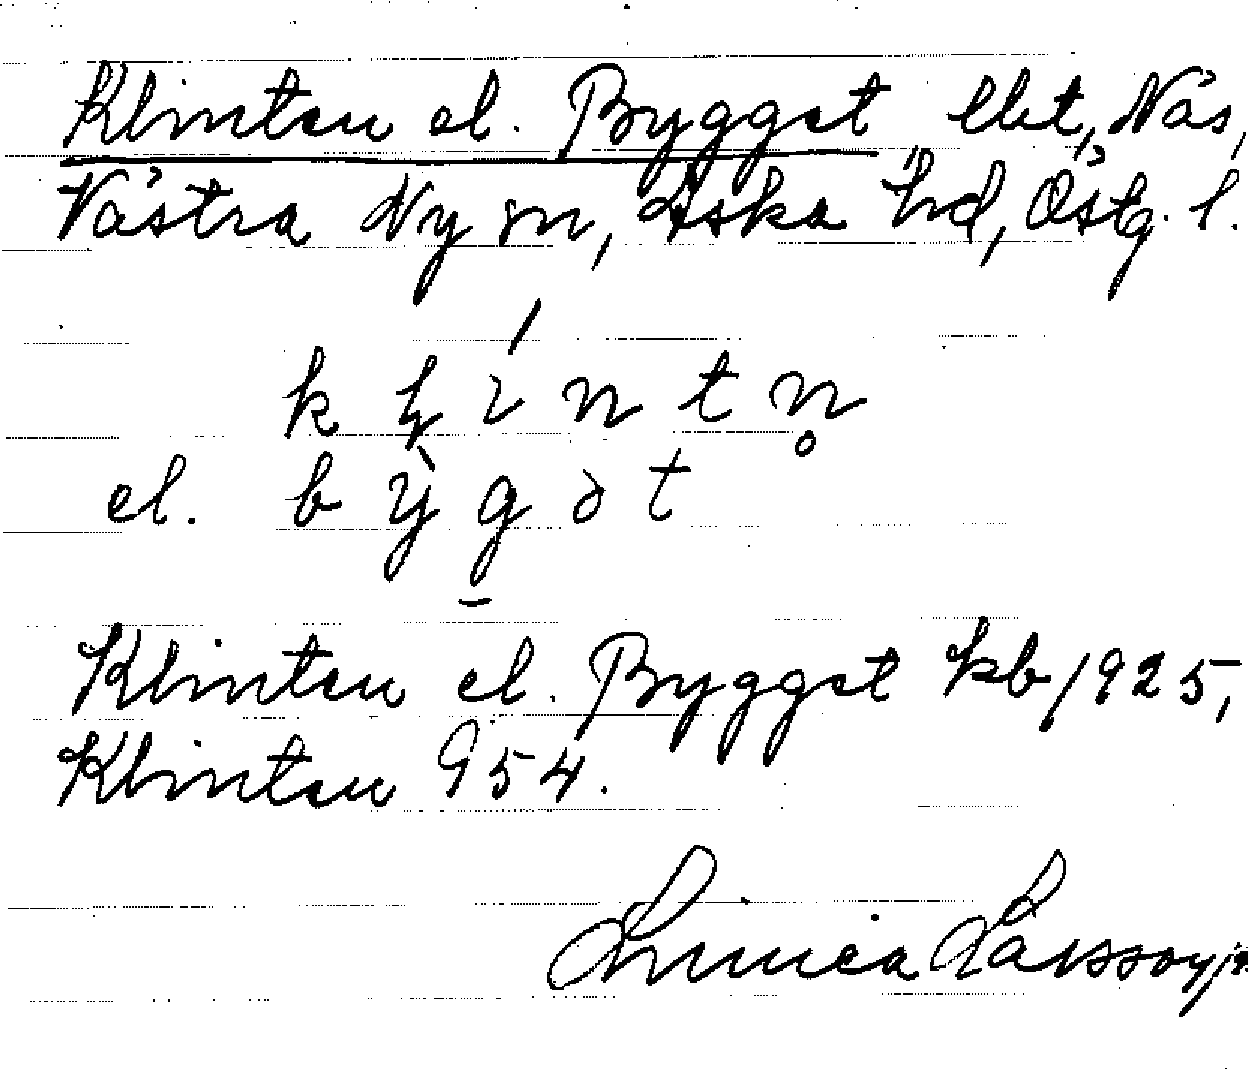 Klinten el. Bygget lht, Näs,
Västra Ny sn, Aska hd, Östg. l.
k ļ í n t n̥
el. b ỳ g ə t
Klinten el. Bygget kb 1925,
Klinten 954.
Linnéa Larsson